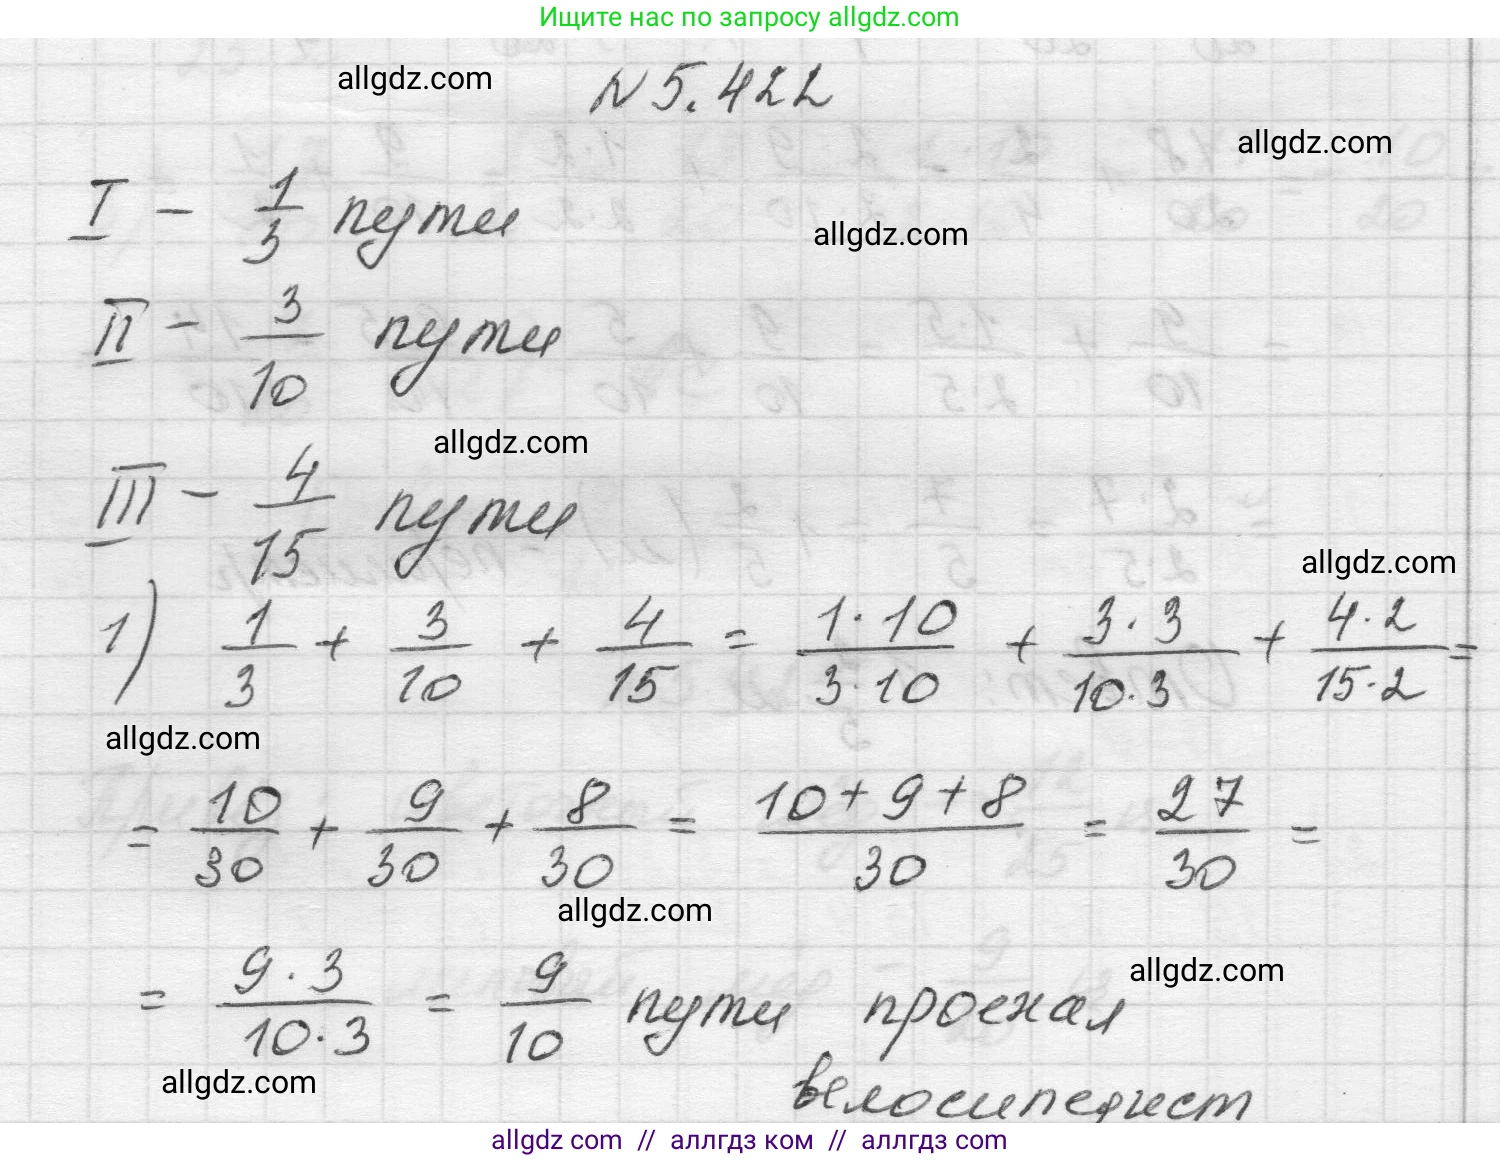 Ищите нас по запросу allgdz.com
allgdz.com
N 5.422
allgdz.com
I - 1/3 пути
allgdz.com
II - 3/10 пути
allgdz.com
III - 4/15 пути
allgdz.com
1) 1/3 + 3/10 + 4/15 = 1·10/3·10 + 3·3/10·3 + 4·2/15·2 =
allgdz.com
= 10/30 + 9/30 + 8/30 = 10+9+8/30 = 27/30 =
allgdz.com
= 9·3/10·3 = 9/10 пути проехал
allgdz.com
allgdz.com
велосипедист
allgdz com // аллгдз ком // аллгдз com